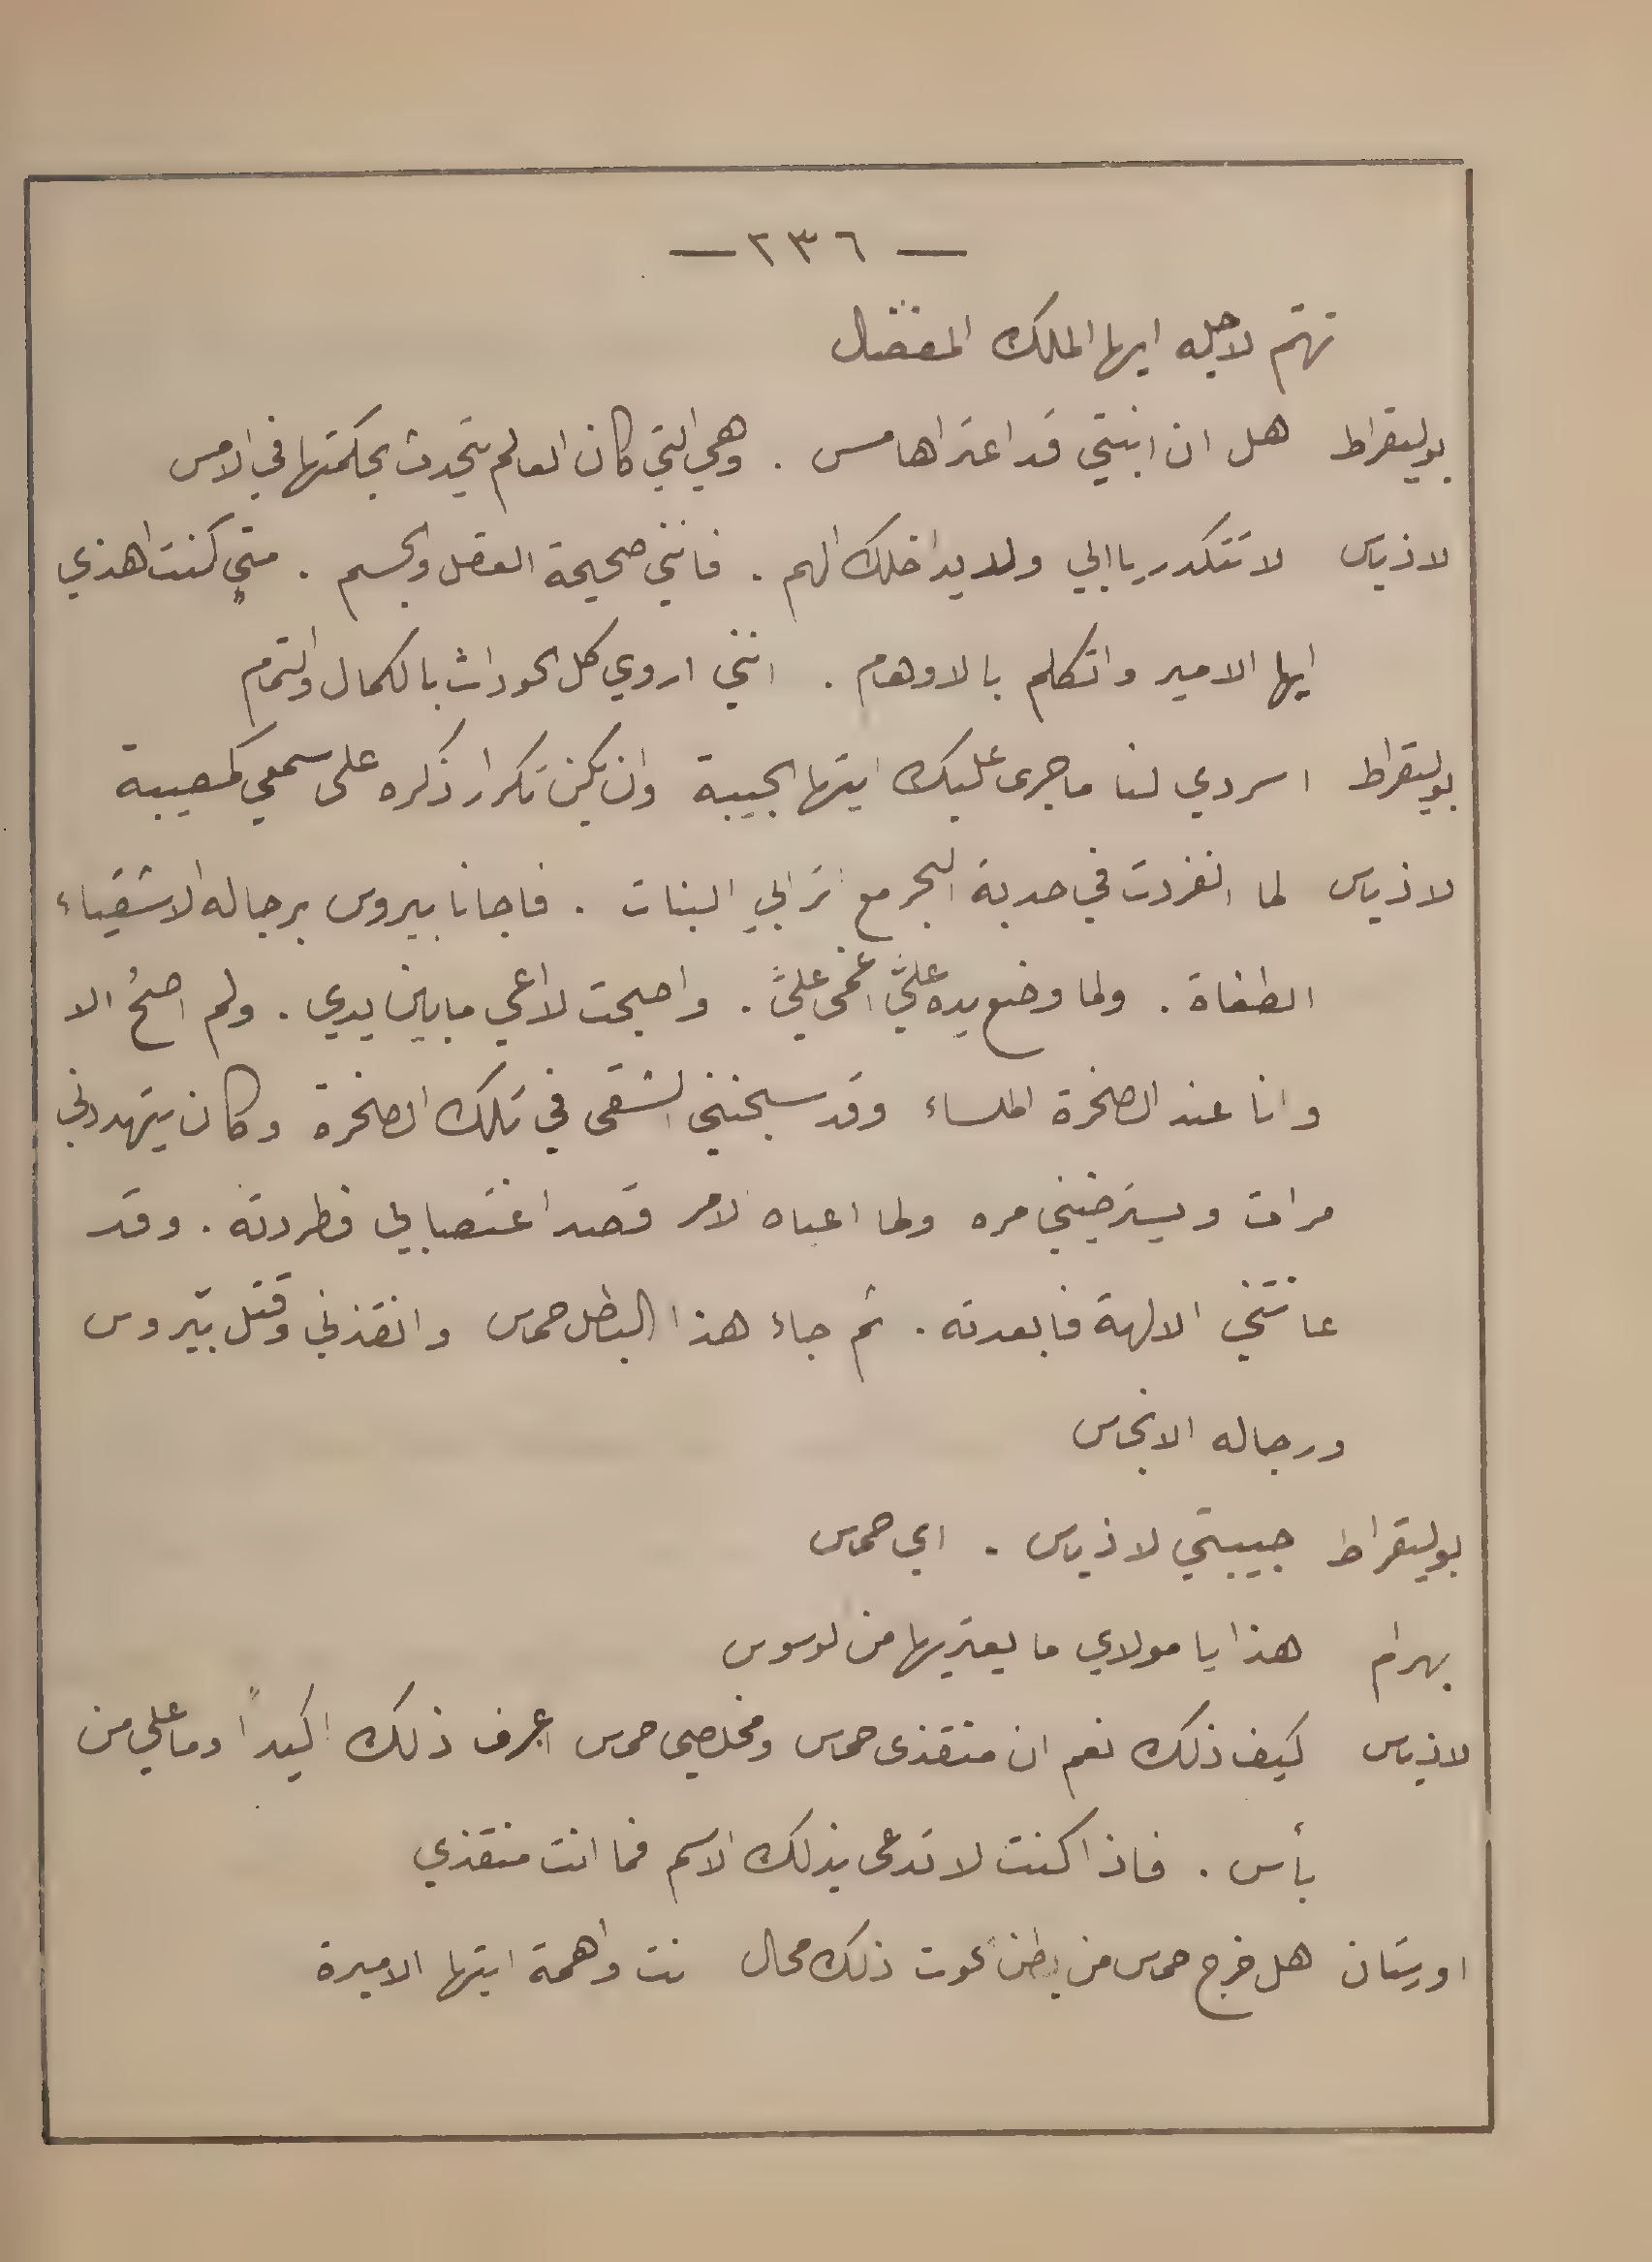 — ٢٣٦ —
تهتم لاجله ايها الملك المفضال
بوليقراط هل ان ابنتي قد اعتراها مس . وهي التي كان العالم يتحدث بحكمتها في الامس
لاذياس لا تتكدر يا ابي ولا يداخلك الهم . فانني صحيحة العقل والجسم . متى كنت اهذي
ايها الامير واتكلم بالاوهام . انني اروي كل الحوداث بالكمال والتمام
بوليقراط اسردي لنا ما جرى عليك ايتها الحبيبة وان يكن تكرار ذكره على سمعي كمصيبة
لاذياس لما انفردت في حدبة البحر مع اترابي البنات . فاجانا بيروس برجاله الاشقياء
الطغاة . ولما وضع يده عليَّ اغمى عليَّ . واصبحت لا اعي ما بين يدي . ولم اصحُ الا
وانا عند الصخرة الملساء وقد سجنني الشقى في تلك الصخرة وكان يتهددني
مرات ويسترضيني مره ولما اعياه الامر قصد اغتصابي فطردته . وقد
عانتني الالهة فابعدته . ثم جاء هذا البطل حماس وانقذني وقتل بيروس
ورجاله الانجاس
بوليقراط حبيبتي لاذياس . اي حماس
بهرام هذا يا مولاي ما يعتريها من لوسوس
لاذياس كيف ذلك نعم ان منقذى حماس ومخلصي حماس اعرف ذلك اكيداً وما علي من
بأس . فاذا كنت لا تدعى بذلك الاسم فما انت منقذي
اوريتان هل خرج حماس من بطن حوت ذلك محال نت واهمة ايتها الاميرة